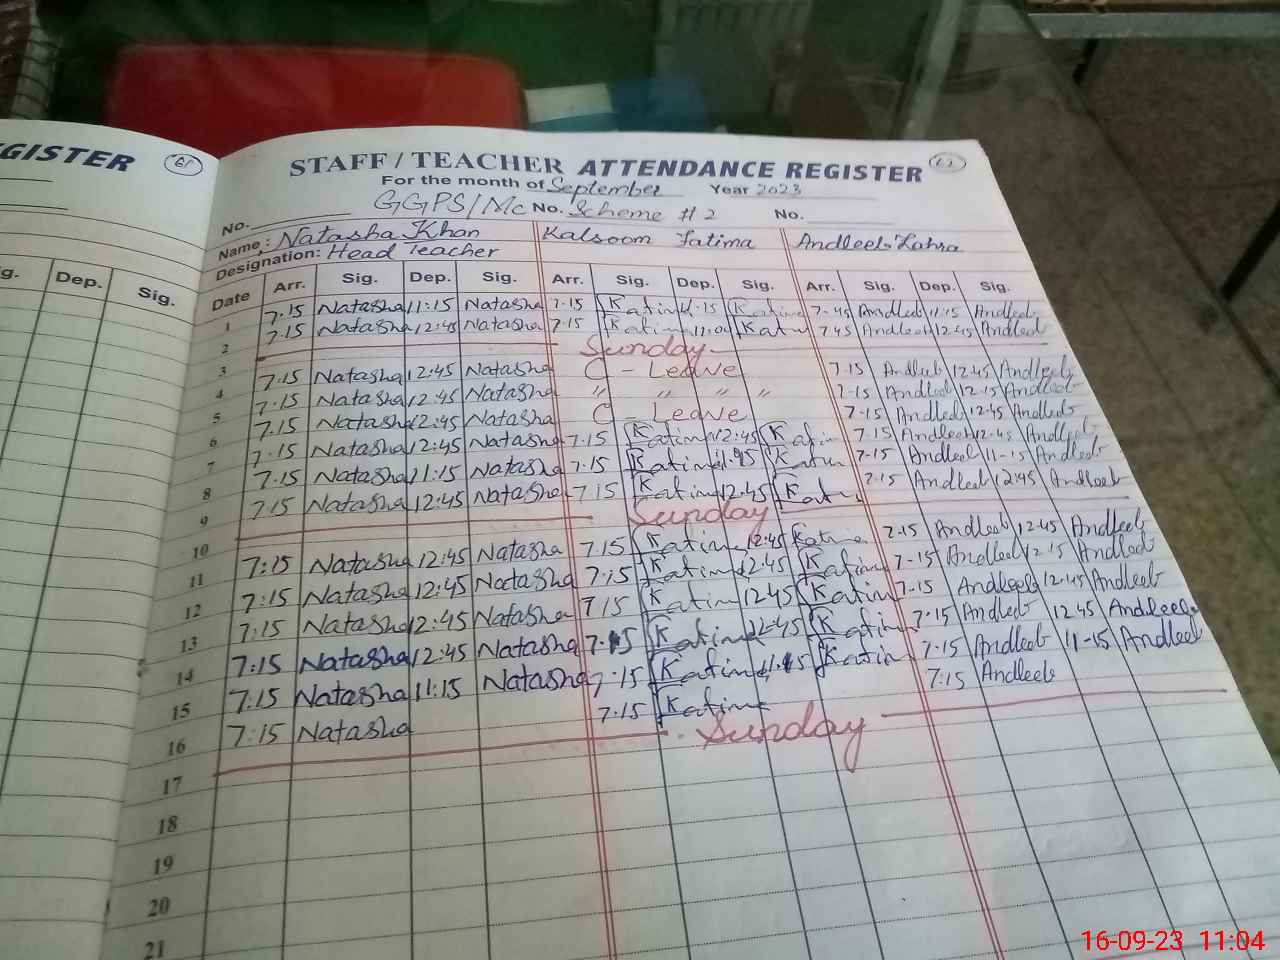 GISTER 61
STAFF / TEACHER ATTENDANCE REGISTER
For the month of September Year 2023
GGPS/MC No. Scheme # 2 No.
No.
Name: Natasha Khan Kalsoom Fatima Andleeb Zahra
Designation: Head Teacher
g. Dep. Sig.
Date Arr. Sig. Dep. Sig. Arr. Sig. Dep. Sig. Arr. Sig. Dep. Sig.
1 7.15 Natasha 11:15 Natasha 7.15 K Fatima 11.15 K Fatima 7-45 Andleeb 11:15 Andleeb
2 7.15 Natasha 12:45 Natasha 7.15 K Fatima K Fatima 7 45 Andleeb 12:45 Andleeb
3 Sunday
4 7.15 Natasha 12:45 Natasha C - Leave 7.15 Andleeb 12:45 Andleeb
5 7.15 Natasha 12:45 Natasha " " " " 7-15 Andleeb 12-15 Andleeb
6 7.15 Natasha 12:45 Natasha C - Leave 7-15 Andleeb 12:45 Andleeb
7 7.15 Natasha 12:45 Natasha 7.15 K Fatima 12:45 K Fatima 7.15 Andleeb 12.45 Andleeb
8 7.15 Natasha 11:15 Natasha 7.15 K Fatima K Fatima 7-15 Andleeb 11-15 Andleeb
9 7.15 Natasha 12:45 Natasha 7.15 K Fatima 12.45 K Fatima 7.15 Andleeb 12:45 Andleeb
10 Sunday
11 7:15 Natasha 12:45 Natasha 7.15 K Fatima 12:45 K Fatima 7.15 Andleeb 12.45 Andleeb
12 7:15 Natasha 12:45 Natasha 7:15 K Fatima 12:45 K Fatima 7-15 Andleeb 12:15 Andleeb
13 7:15 Natasha 12:45 Natasha 7 15 K Fatima 12 45 K Fatima 7-15 Andleeb 12:45 Andleeb
14 7:15 Natasha 12:45 Natasha 7.15 K Fatima 12-45 K Fatima 7.15 Andleeb 12 45 Andleeb
15 7:15 Natasha 11:15 Natasha 7.15 K Fatima 11.15 K Fatima 7.15 Andleeb 11-15 Andleeb
16 7:15 Natasha 7.15 K Fatima 7.15 Andleeb
17 Sunday
18
19
20
21
16-09-23 11:04